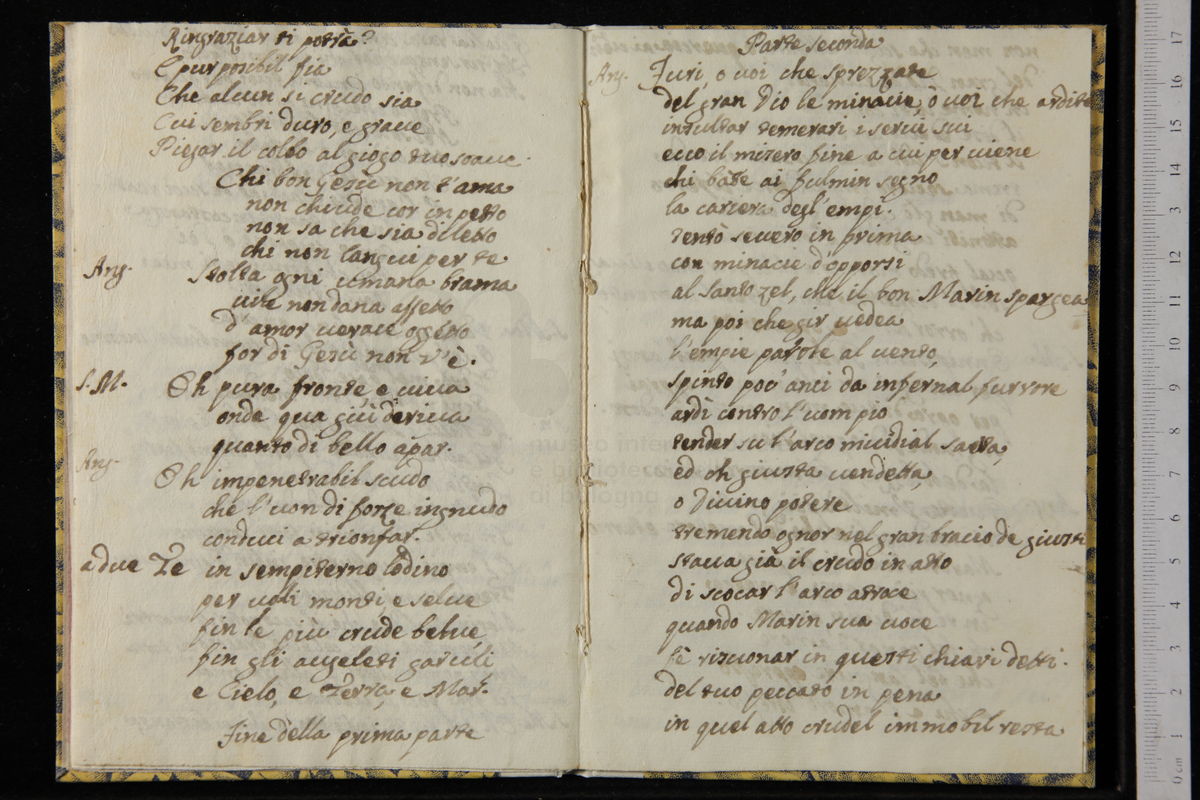 Ringraziar ti potrà?
E pur posibil fia
Che alcun si crudo sia
Cui sembri duro, e graue
Piegar il collo al giogo tuo soaue.
Chi bon Gesù non t'ama
non chiude cor in petto
non sa che sia diletto
chi non langue per te
Ang. Stolta ogni umana brama
uile mondana affetto
d'amor uerace oggetto
for di Gesù non u'è.
S. M. Oh pura fronte, e uiua
onda qua giù deriua
quanto di bello apar.
Ang. Oh impenetrabil scudo
che l'uon di forze ingnudo
conduci a trionfar.
a due Te in sempiterno lodino
per uali monti e selue
fin le più crude belue
fin gli augeleti garuli
e Cielo, e Terra, e Mar.
fine della prima parte
Parte seconda
Ang. Furi, o uoi che sprezzate
del gran Dio le minacie, ò uoi che ardite
insultar temerari i serui sui
ecco il misero fine a cui per uiene
chi bate ai fulmin segno
la cariera degl'empi.
tentò seuero in prima
con minacie d'opporsi
al santo zel, che il bon Marin spargea
ma poi che gir uedea
l'empie parole al uento,
spinto poc'anci da infernal furrore
ardì contro l'uom pio
tender sul'arco micidial saetta,
ed oh giusta uendetta,
o Diuino potere
tremendo ognor nel gran braccio de giusti
staua già il crudo in atto
di scocar l'arco atroce
quando Marin sua uoce
fè risuonar in questi chiari detti.
del tuo peccato in pena
in quel atto crudel immobil resta
museo inter
e biblioteca
di bologna
17
16
15
14
13
12
11
10
9
8
7
6
5
4
3
2
1
0 cm